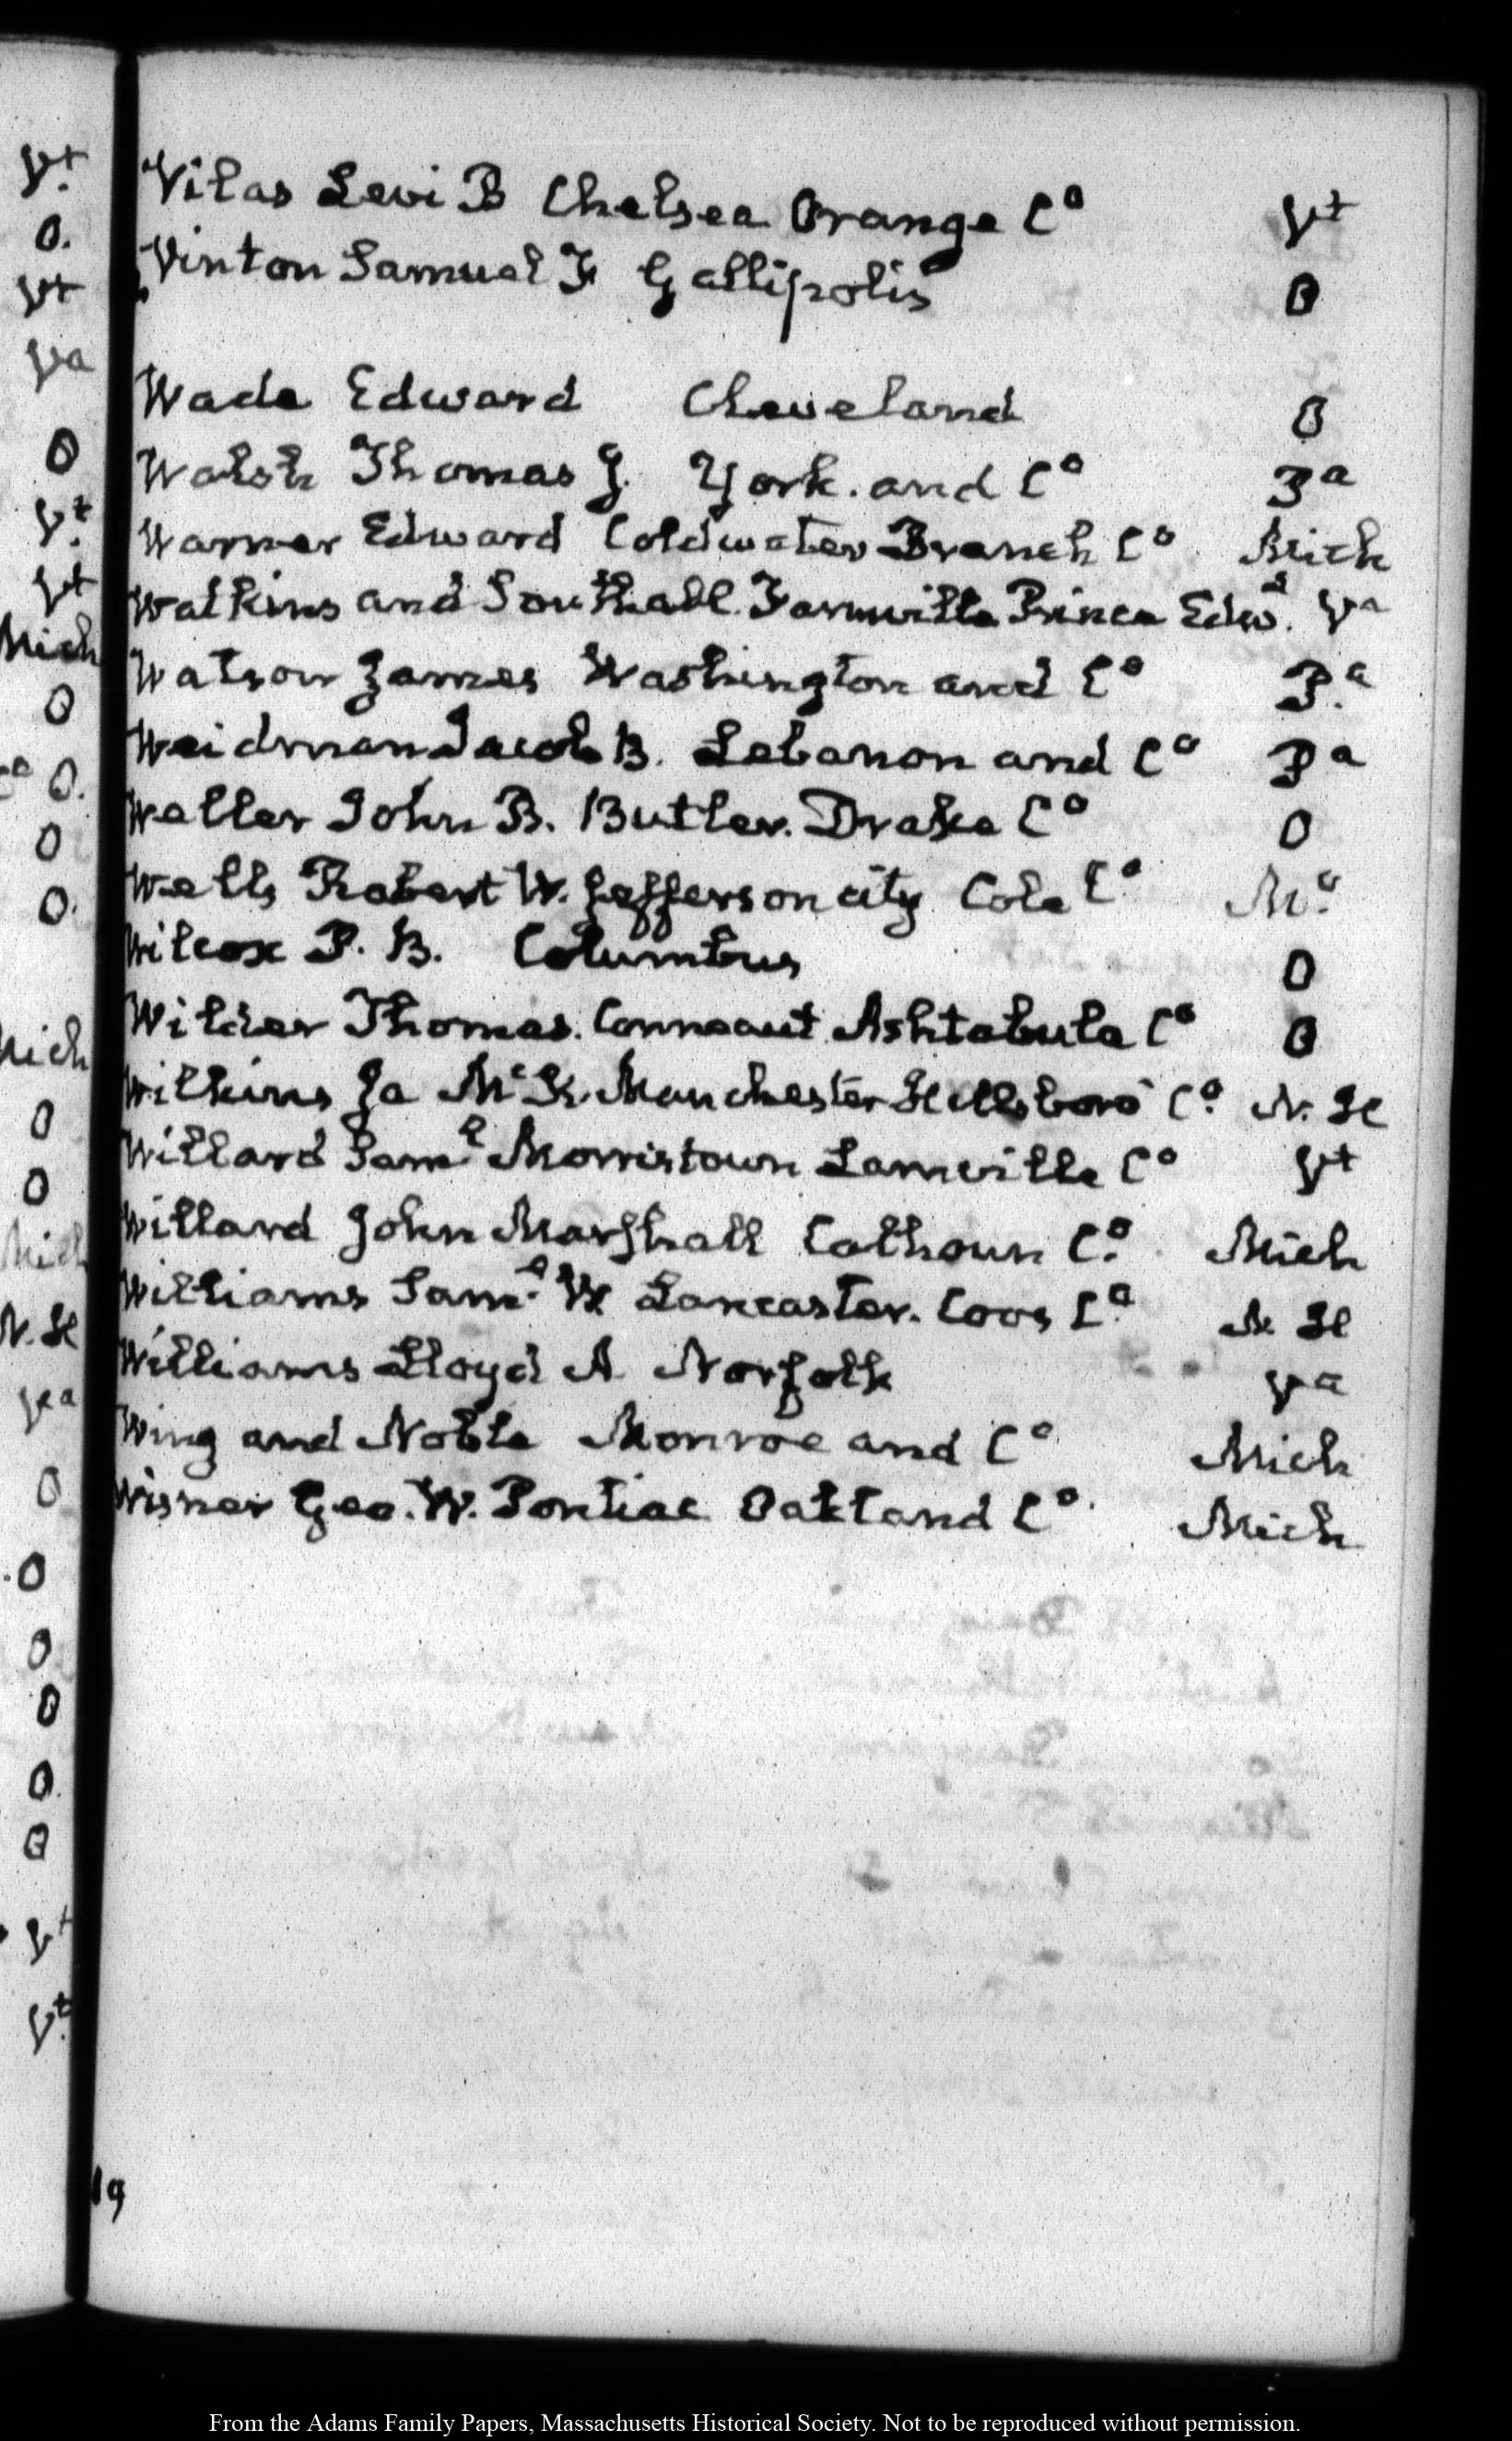 Vilas Levi B Chelsea Orange Cº Vt
Vinton Samuel F Gallipolis O
Wade Edward Cleveland O
Walsh Thomas J. York. and Cº Pª
Warner Edward Coldwater Branch Cº Mich
Watkins and Southall. Farmville Prince Edwd. Vª
Watson James Washington and Cº P.ª
Weidman Jacob B. Lebanon and Cº Pª
Weller John B. Butler. Drake Cº O
Wells Robert W. Jefferson city Cole Cº M.º
Wilcox P. B. Columbus O
Wilder Thomas. Conneaut Ashtabula Cº O
Wilkins Ja McK. Manchester Hillsboro' C.º N. H
Willard Saml Morristown Lamville Cº Vt
Willard John Marshall Calhoun C.º Mich
Williams Saml. W Lancaster. Coos C.º N H
Williams Lloyd A Norfolk Va
Wing and Noble Monroe and Cº Mich
Wisner Geo. W. Pontiac Oakland Cº Mich
Vt.
O.
Vt
Va
O
Vt.
Vt
Mich
O
O.
O
O.
Mich
O
O
Mich
N. H
Va
O
O
O
O
O.
O
Vt
Vt.
19
From the Adams Family Papers, Massachusetts Historical Society. Not to be reproduced without permission.